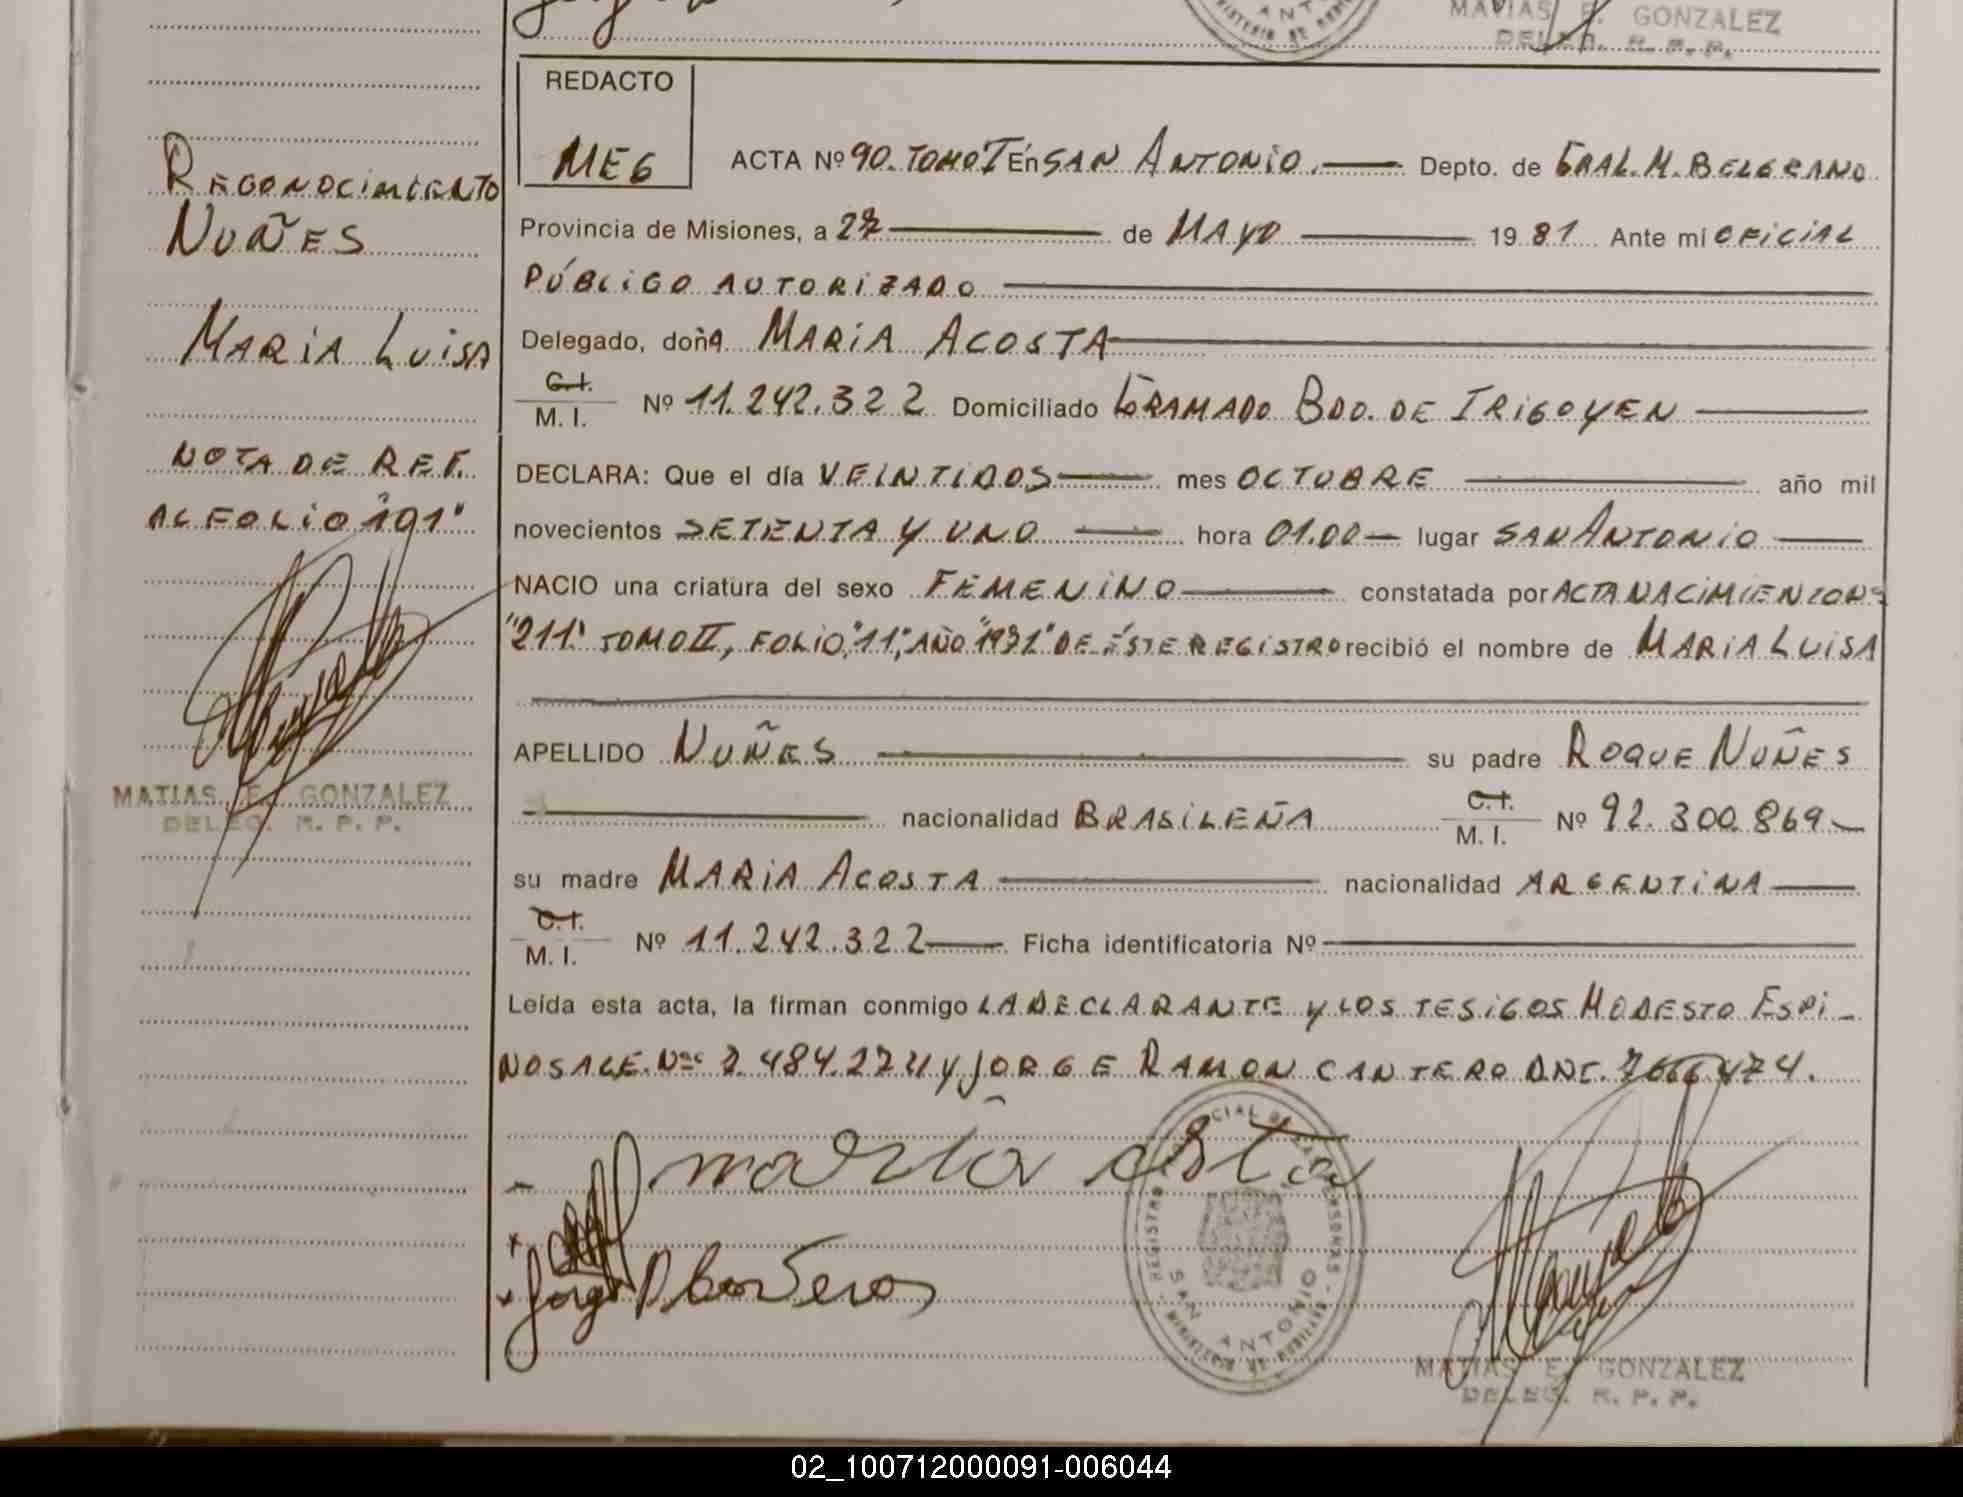 MATIAS E. GONZALEZ
DELEG. R. P. P.
REDACTO
MEG
ACTA Nº 90. TOMO I En SAN ANTONIO. Depto. de GRAL. M. BELGRANO
Provincia de Misiones, a 27 de MAYO 1981 Ante mi OFICIAL
PÚBLICO AUTORIZADO
Delegado, doña MARIA ACOSTA
C.I.
M. I. Nº 11.242.322 Domiciliado GRAMADO BDO. DE IRIGOYEN
DECLARA: Que el día VEINTIDOS mes OCTUBRE año mil
novecientos SETENTA Y UNO hora 01.00 lugar SAN ANTONIO
NACIO una criatura del sexo FEMENINO constatada por ACTA NACIMIENTO Nº
"211" TOMO II, FOLIO "11", AÑO "1971" DE ÉSTE REGISTRO recibió el nombre de MARIA LUISA
APELLIDO NUÑES su padre ROQUE NUÑES
nacionalidad BRASILEÑA C.I. M. I. Nº 92.300.869
su madre MARIA ACOSTA nacionalidad ARGENTINA
C.I.
M. I. Nº 11.242.322 Ficha identificatoria Nº
Leída esta acta, la firman conmigo LA DECLARANTE Y LOS TESIGOS MODESTO ESPI-
NOSA LE. Nº 7.484.274 Y JORGE RAMON CANTERO DNI. 7666474.
maria
SAN ANTONIO
MATIAS E. GONZALEZ
DELEG. R. P. P.
RECONOCIMIENTO
NUÑES
MARIA LUISA
NOTA DE REF.
AL FOLIO "191"
MATIAS E. GONZALEZ
DELEG. R. P. P.
02_100712000091-006044